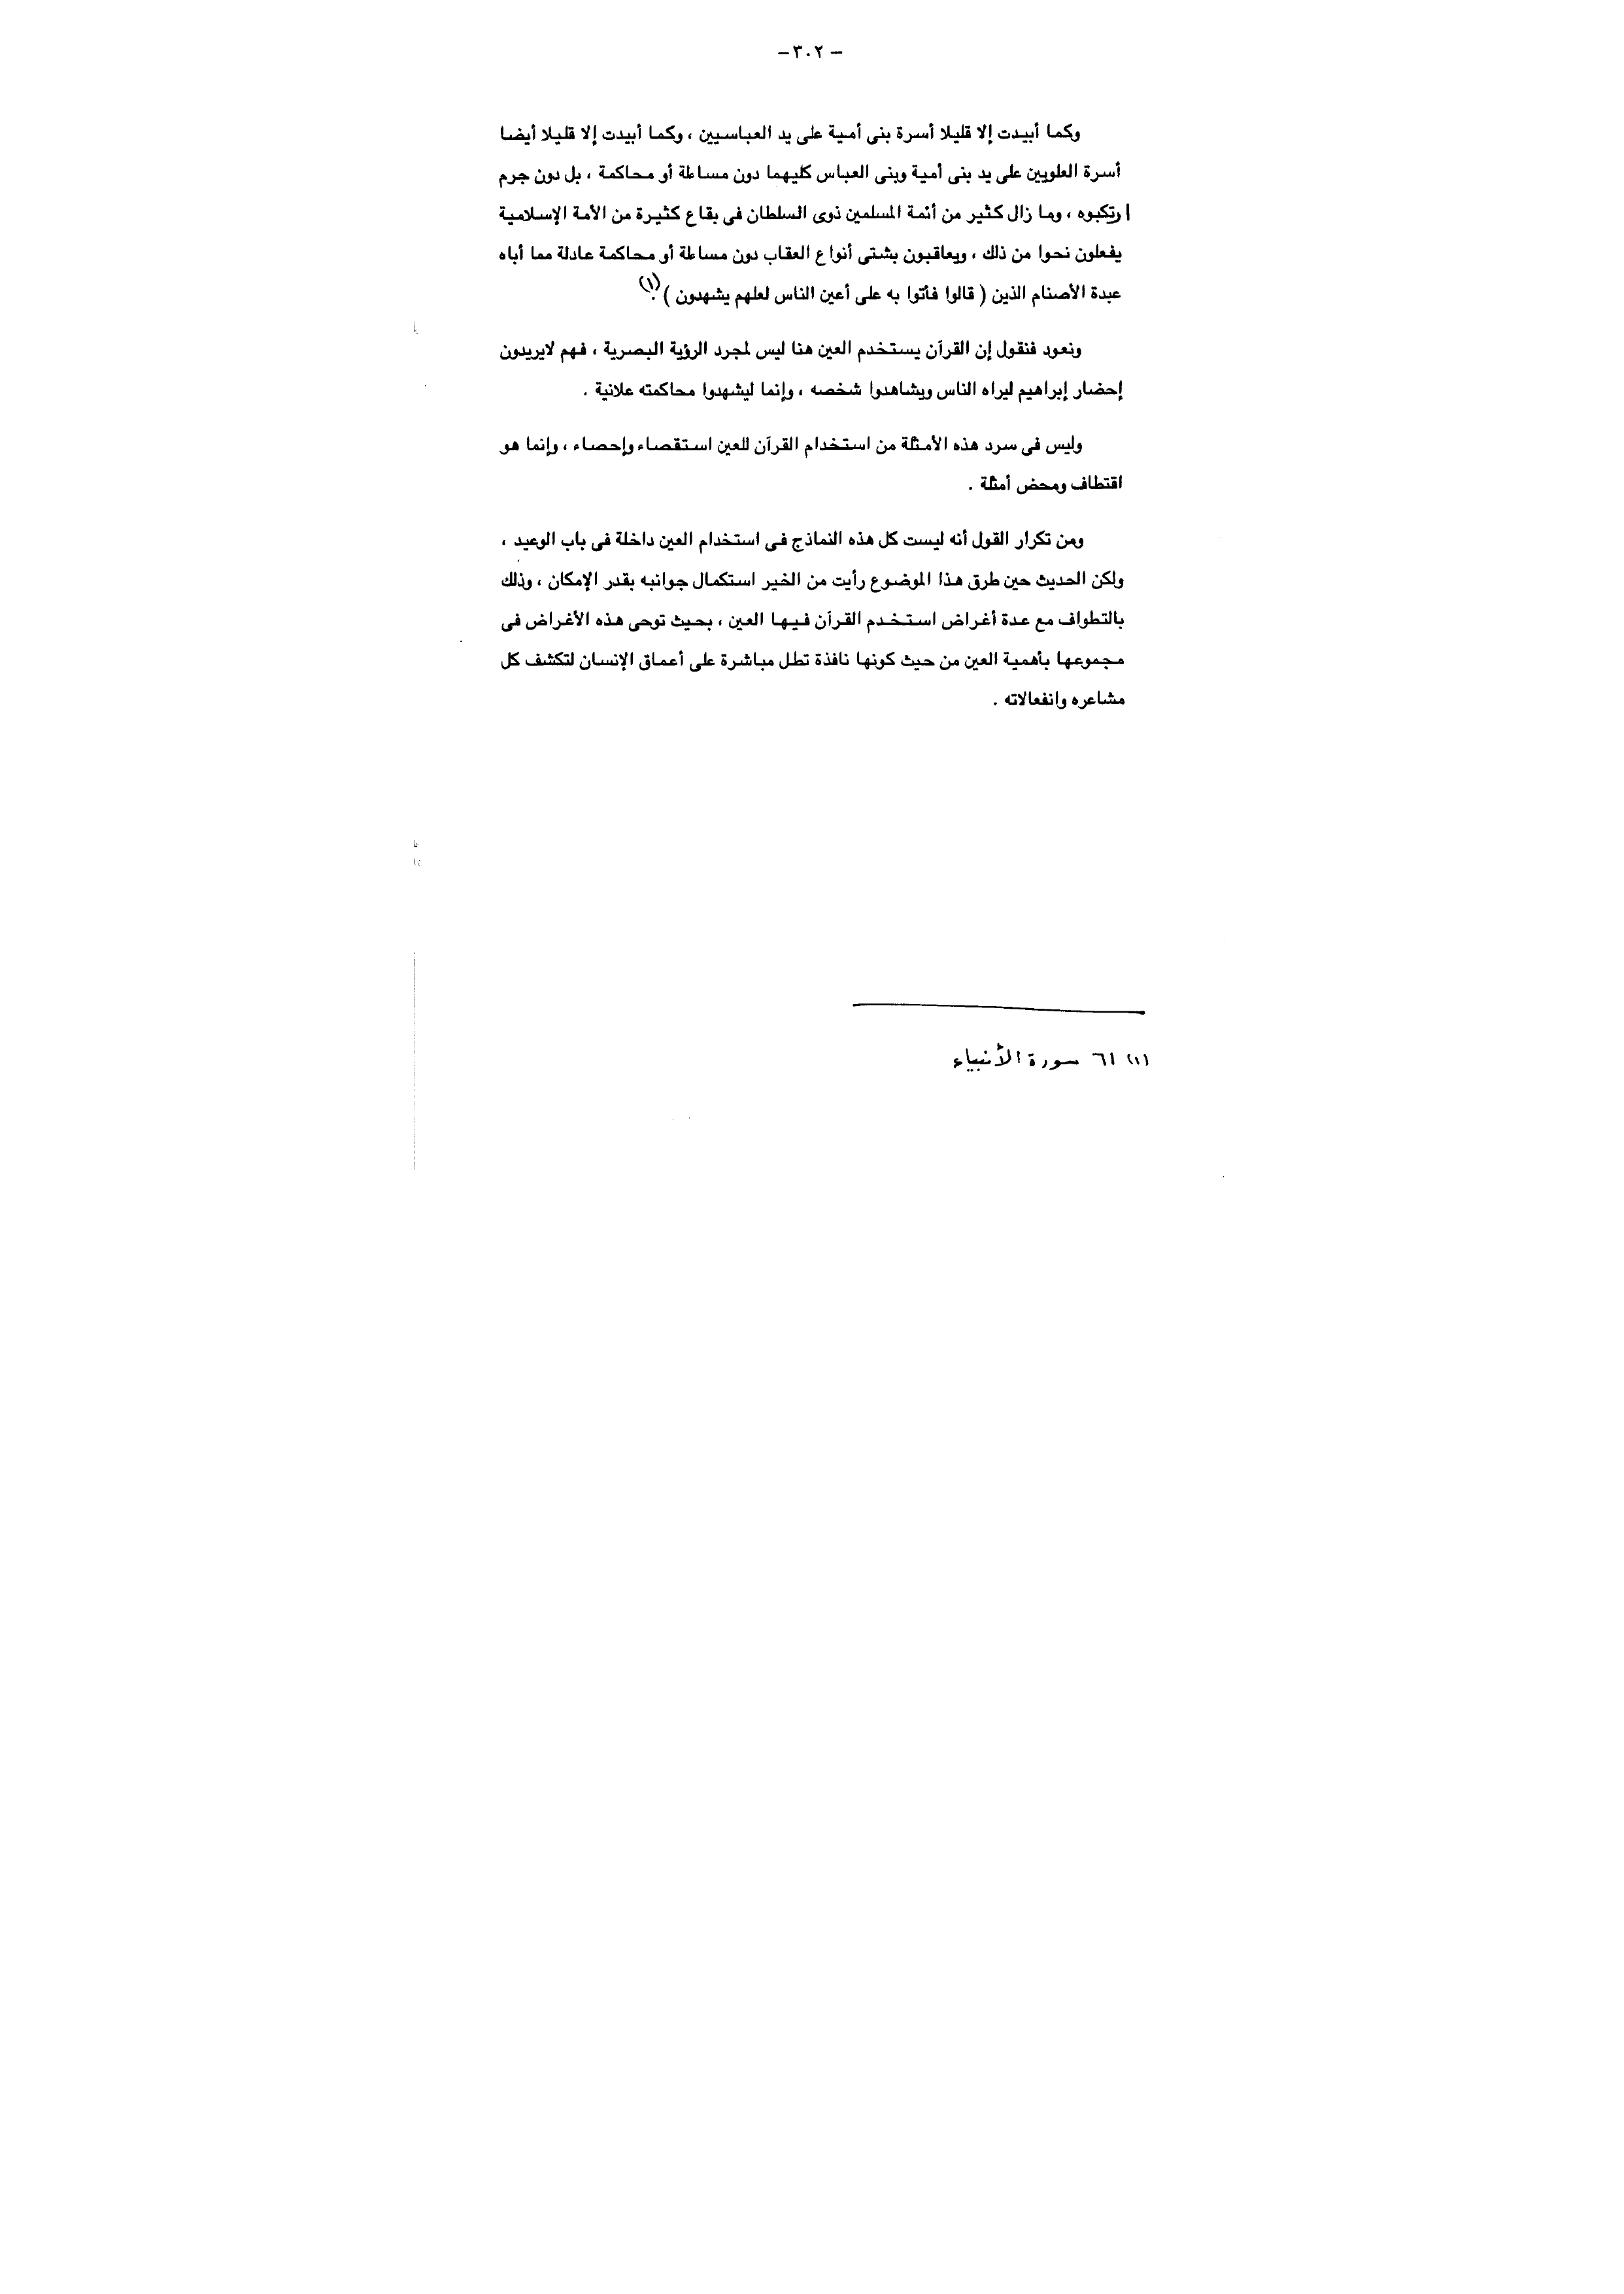 – ٣٠٢ –
وكما أبيدت إلا قليلا أسرة بنى أمية على يد العباسيين ، وكما أبيدت إلا قليلا أيضا
أسرة العلويين على يد بنى أمية وبنى العباس كليهما دون مساءلة أو محاكمة ، بل دون جرم
ارتكبوه ، وما زال كثير من أئمة المسلمين ذوى السلطان فى بقاع كثيرة من الأمة الإسلامية
يفعلون نحوا من ذلك ، ويعاقبون بشتى أنواع العقاب دون مساءلة أو محاكمة عادلة مما أباه
عبدة الأصنام الذين ( قالوا فأتوا به على أعين الناس لعلهم يشهدون ) (١).
ونعود فنقول إن القرآن يستخدم العين هنا ليس لمجرد الرؤية البصرية ، فهم لايريدون
إحضار إبراهيم ليراه الناس ويشاهدوا شخصه ، وإنما ليشهدوا محاكمته علانية .
وليس فى سرد هذه الأمثلة من استخدام القرآن للعين استقصاء وإحصاء ، وإنما هو
اقتطاف ومحض أمثلة .
ومن تكرار القول أنه ليست كل هذه النماذج فى استخدام العين داخلة فى باب الوعيد ،
ولكن الحديث حين طرق هذا الموضوع رأيت من الخير استكمال جوانبه بقدر الإمكان ، وذلك
بالتطواف مع عدة أغراض استخدم القرآن فيها العين ، بحيث توحى هذه الأغراض فى
مجموعها بأهمية العين من حيث كونها نافذة تطل مباشرة على أعماق الإنسان لتكشف كل
مشاعره وانفعالاته .
(١) ٦١ سورة الأنبياء